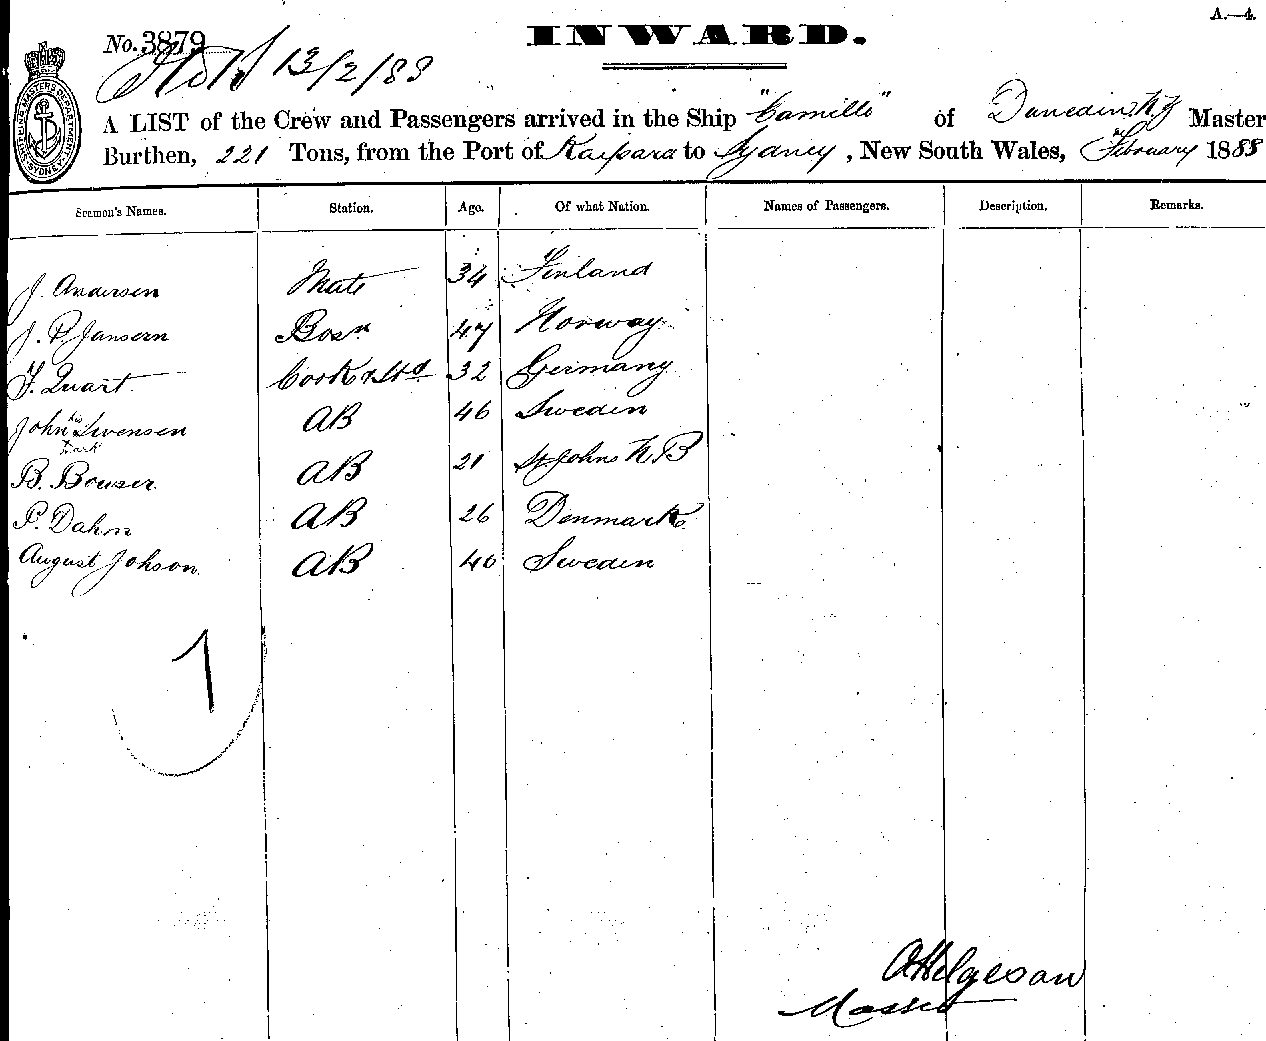 A.—4.
No. 3879
INWARD.
13/2/88
SHIPPING MASTERS DEPARTMENT SYDNEY
A LIST of the Crew and Passengers arrived in the Ship "Camille" of Dunedin N.Z Master
Burthen, 221 Tons, from the Port of Kaipara to Sydney, New South Wales, February 1888
Seamen's Names. Station. Age. Of what Nation. Names of Passengers. Description. Remarks.
J. Andersen Mate 34 Finland
J. P. Jansern Bosn 47 Norway
F. Quart Cook & Std 32 Germany
John his Svensen AB 46 Sweden
mark
B. Bouser AB 21 St Johns N.B
P. Dahn AB 26 Denmark
August Johson AB 40 Sweden
7
A Helgesan
Master